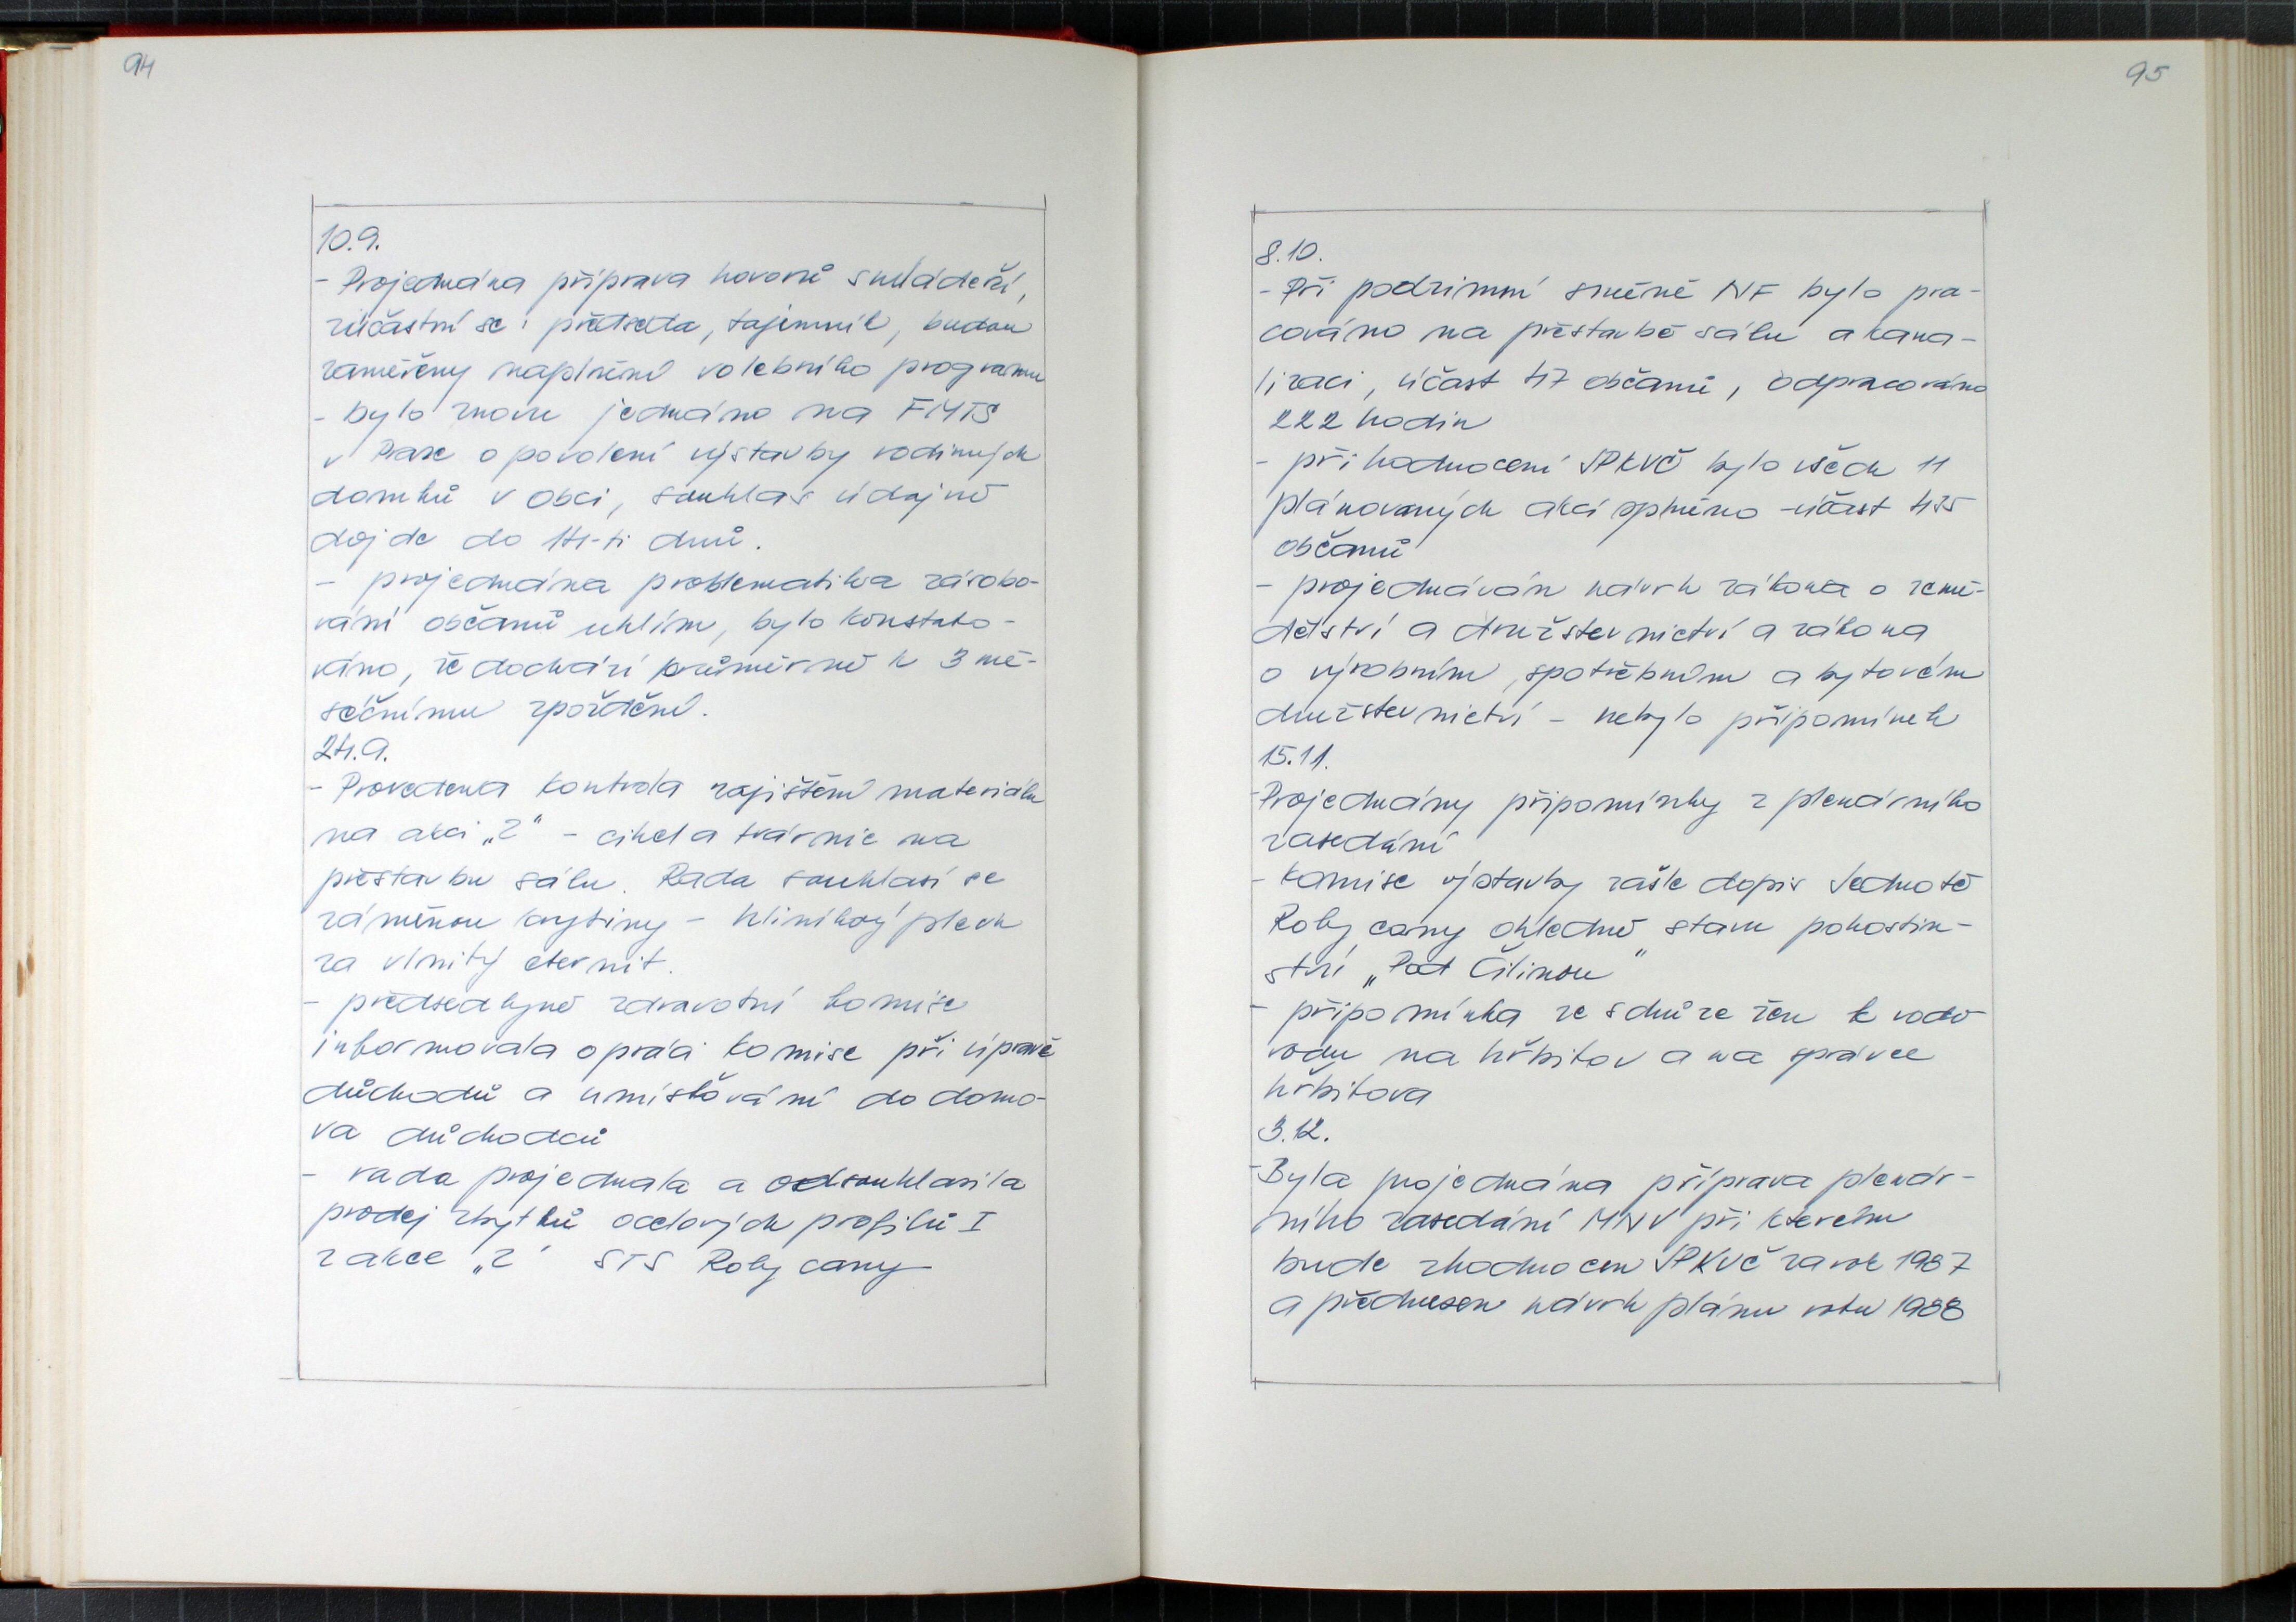 94
10.9.
- Projednána příprava hovorů s mládeží,
zúčastní se: předseda, tajemník, budou
zaměřeny naplnění volebního programu
- bylo znovu jednáno na FMTS
v Praze o povolení výstavby rodinných
domků v obci, souhlas údajně
dojde do 14-ti dnů.
- projednána problematika zásobo-
vání občanů uhlím, bylo konstato-
váno, že dochází průměrně k 3 mě-
síčnímu zpoždění.
24.9.
- Provedena kontrola zajištění materiálu
na akci „Z“ - cihel a tvárnic na
přestavbu sálu. Rada souhlasí se
záměnou krytiny - hliníkový plech
za vlnitý eternit.
- předsedkyně zdravotní komise
informovala o práci komise při úpravě
důchodů a umisťování do domo-
va důchodců
- rada projednala a odsouhlasila
prodej zbytků ocelových profilů I
z akce „Z“ STS Rokycany
95
8.10.
- Při podzimní směně NF bylo pra-
cováno na přestavbě sálu a kana-
lizaci, účast 47 občanů, odpracováno
222 hodin
- při hodnocení JPKVČ bylo všech 11
plánovaných akcí splněno - účast 435
občanů
- projednáván návrh zákona o země-
dělství a družstevnictví a zákona
o výrobním, spotřebním a bytovém
družstevnictví - nebylo připomínek
15.11.
- Projednány připomínky z plenárního
zasedání
- komise výstavby zašle dopis Jednotě
Rokycany ohledně stavu pohostin-
ství „Pod Čilinou“
- připomínka ze schůze žen k vodo
vodu na hřbitov a na správce
hřbitova
3.12.
- Byla projednána příprava plenár-
ního zasedání MNV při kterém
bude zhodnocen JPKVČ za rok 1987
a přednesen návrh plánu roku 1988